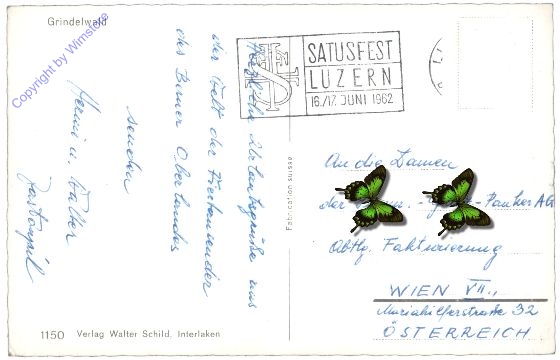 Grindelwald
Copyright by Wimstore
SATUSFEST
LUZERN
16./17. JUNI 1962
Herzliche Urlaubsgrüße aus
der Welt der
des Berner Oberlandes
senden
Hermi u. Walter
Fabrication suisse
An die Damen
der
AG
Abtlg. Fakturierung
WIEN VII.,
Mariahilferstraße 32
ÖSTERREICH
1150 Verlag Walter Schild, Interlaken